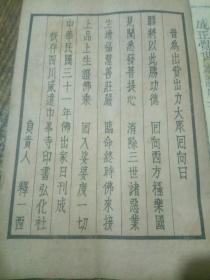 成正覺世
普為出資出力大眾回向曰
願將以此勝功德 回向西方極樂國
見聞悉發菩提心 消除三世諸惡業
生增福慧善莊嚴 臨命終時佛來接
上品上生證佛乘 回入娑婆度一切
中華民國三十一年佛出家日刊成
板存四川威遠中峯寺印書弘化社
負責人 釋一西